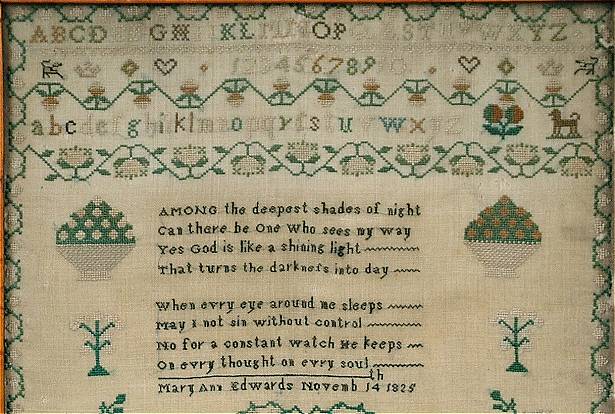 ABCD GH KL OP ST VWXYZ
123456789
abcdefghiklmnopqrsstuvwxyz
AMONG the deepest shades of night
Can there be One Who sees my way
Yes God is like a shining light
That turns the darkneſs into day
When evry eye around me sleeps
May I not sin without control
No for a constant watch He keeps
On evry thought on evry soul
Mary Ann Edwards Novemb 14th 1825